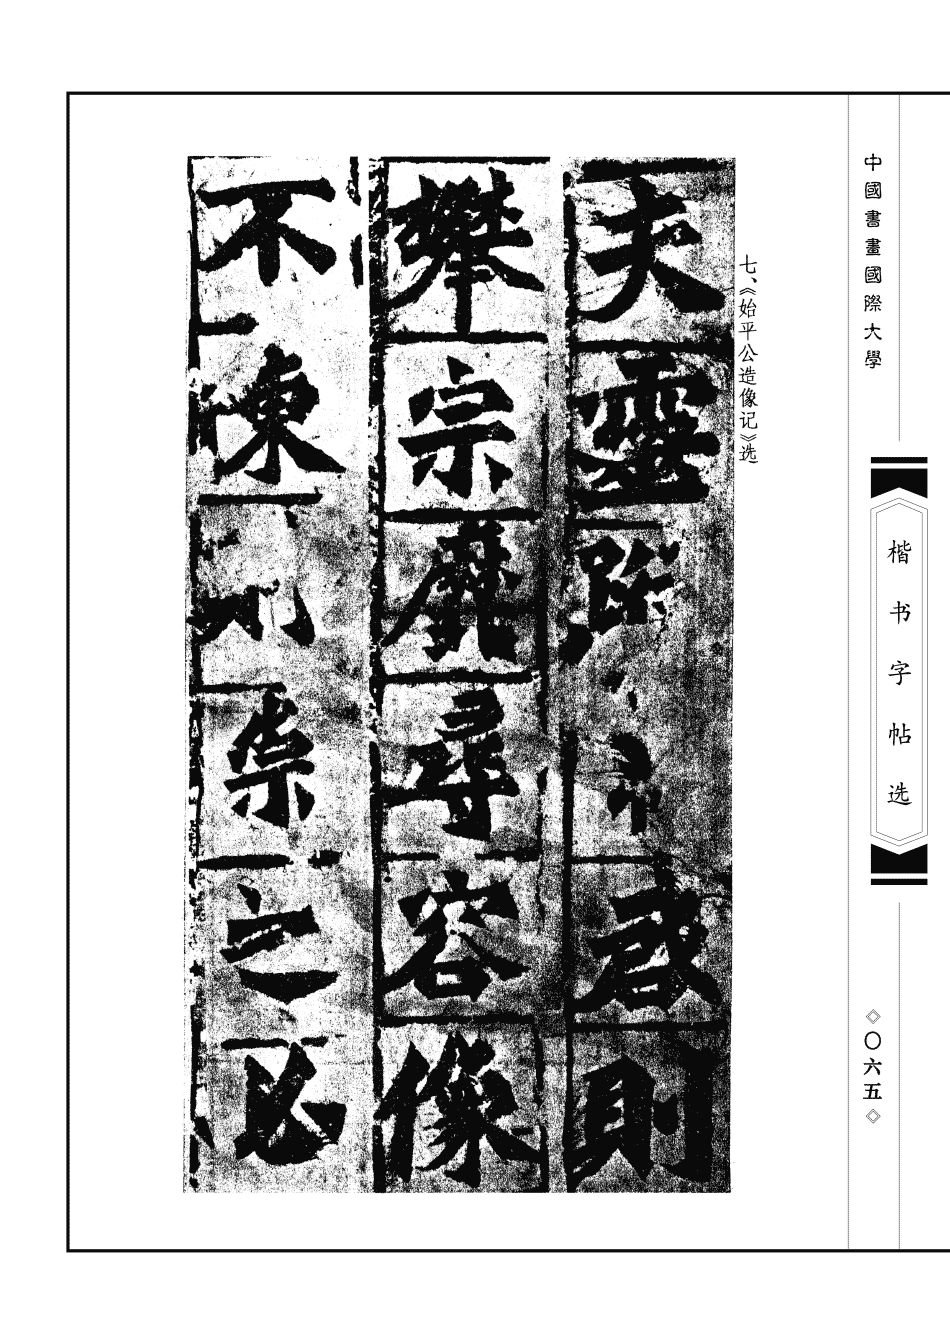 中國書畫國際大學
楷书字帖选
◇〇六五◇
七、《始平公造像记》选
夫靈 啓則
攀宗靡尋容像
不陳 崇之必